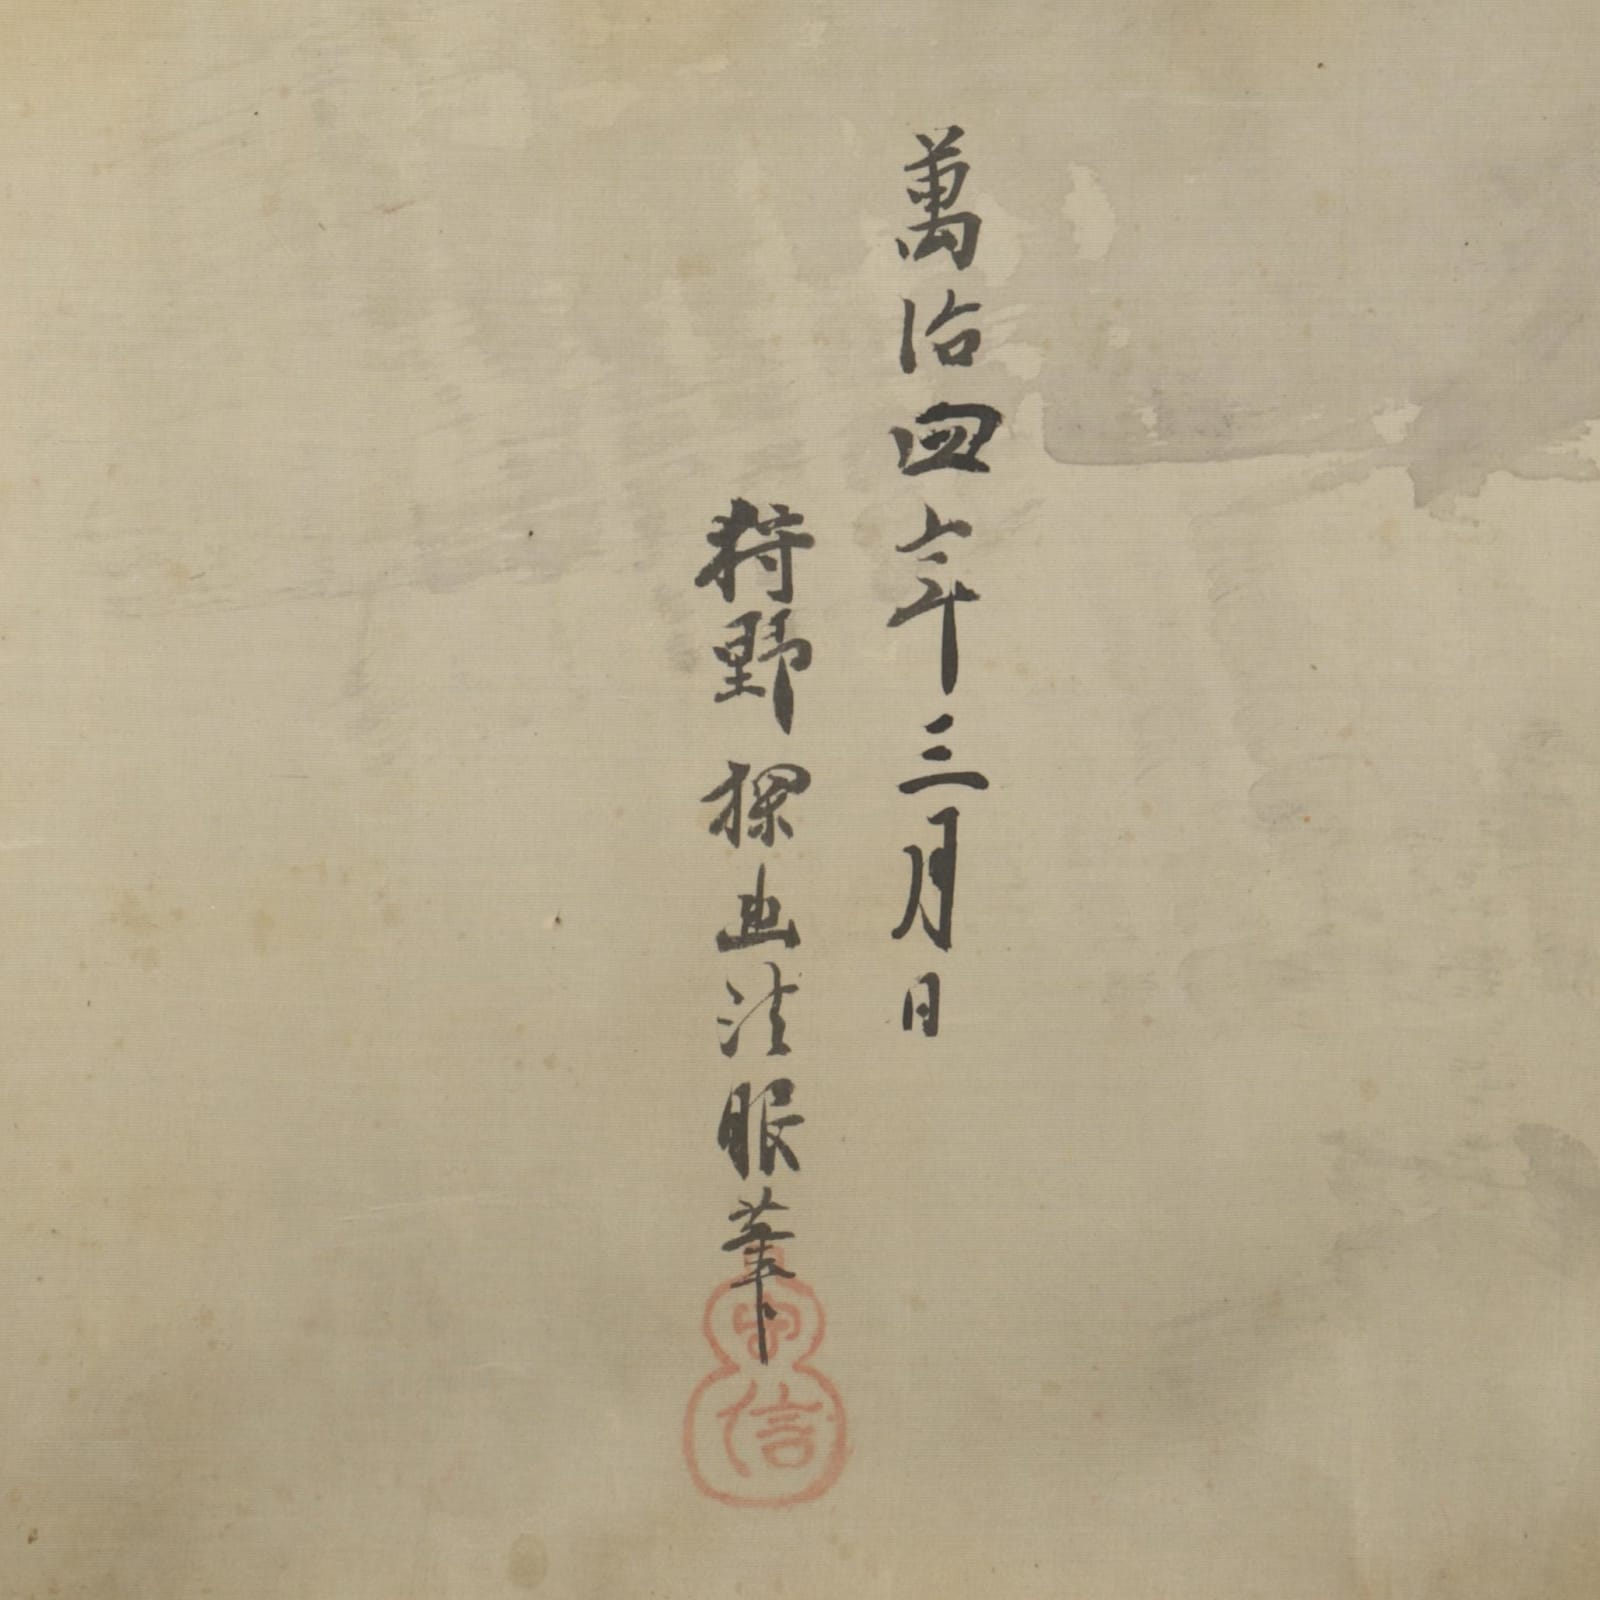 萬治四年三月日
狩野探幽法眼筆
守信